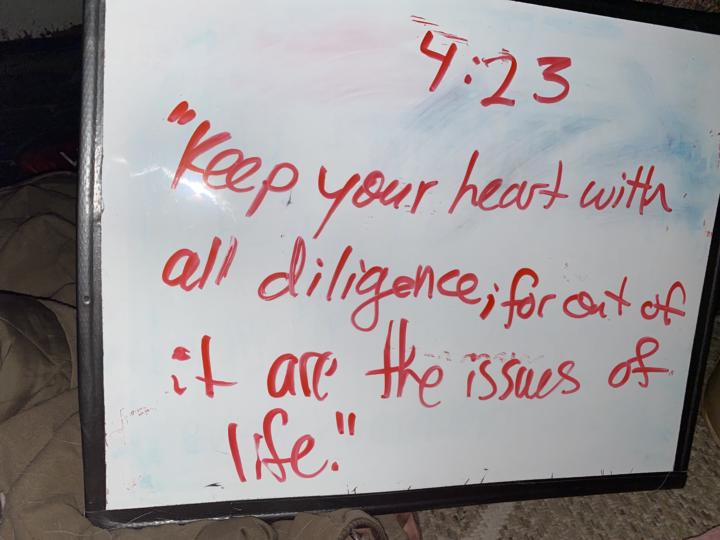 4:23
"Keep your heart with
all diligence, ; for out of
it are the issues of
life."